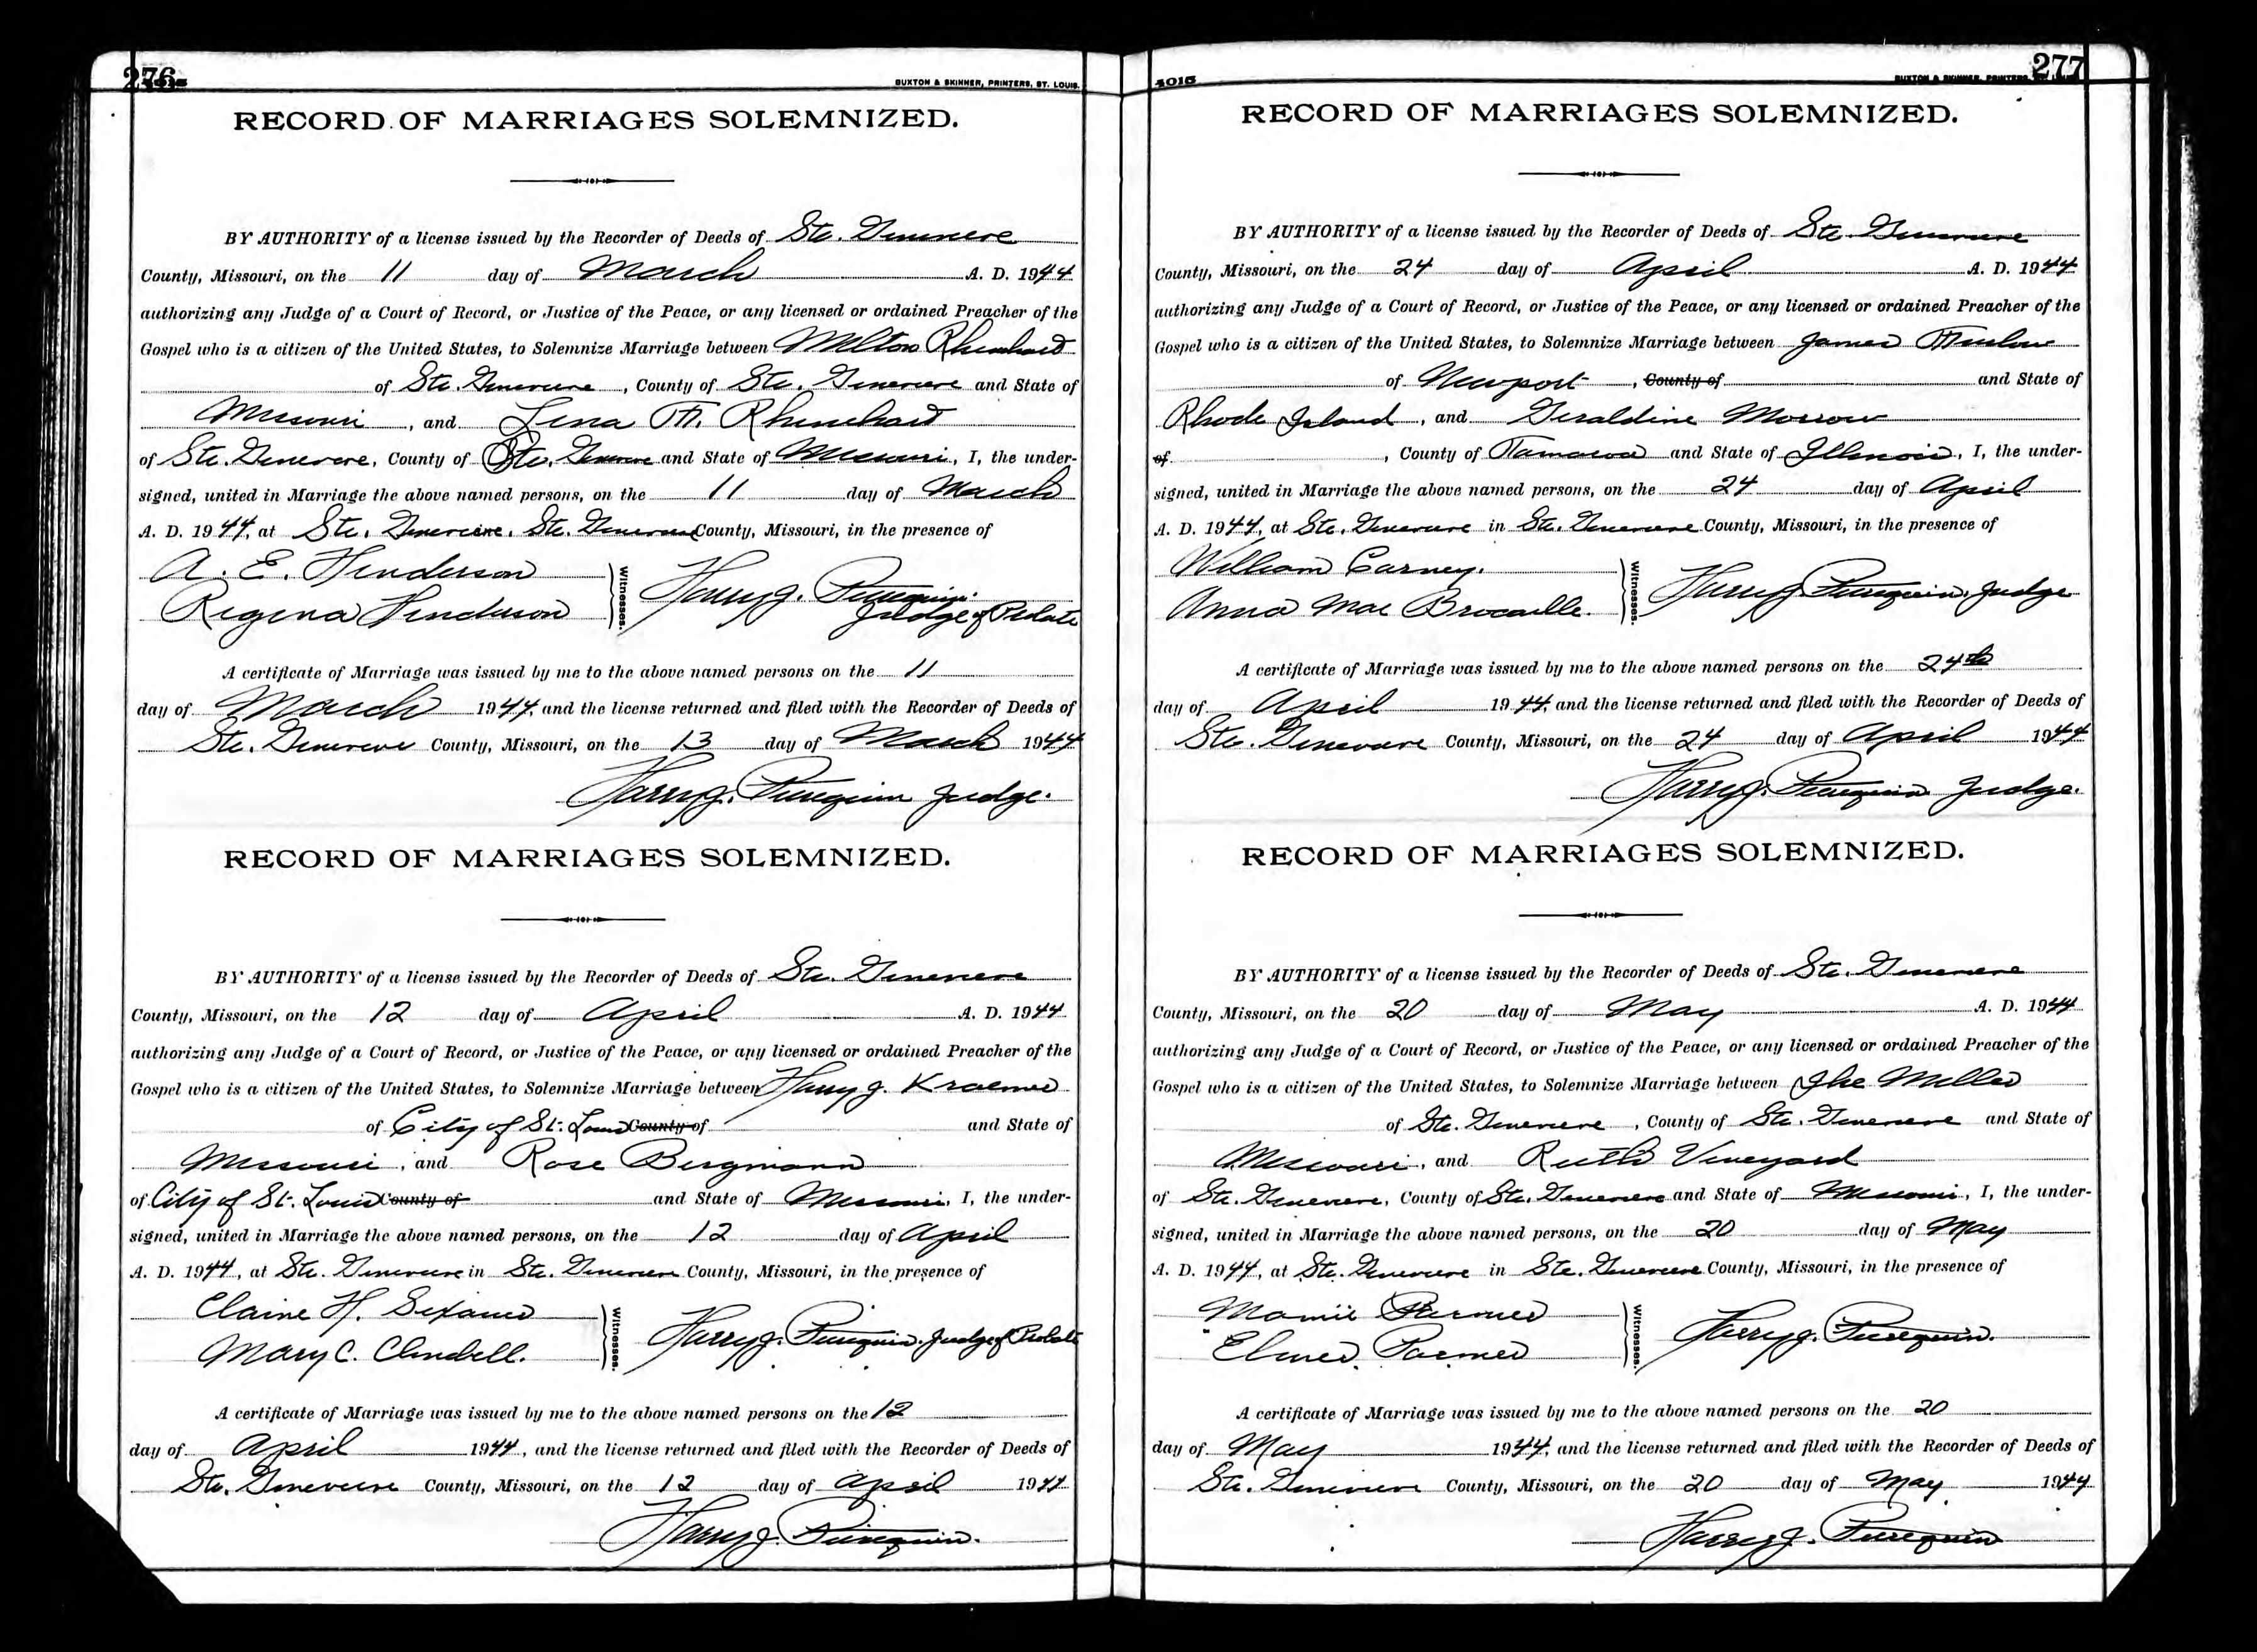 276
BUXTON & SKINNER, PRINTERS, ST. LOUIS.
RECORD OF MARRIAGES SOLEMNIZED.
BY AUTHORITY of a license issued by the Recorder of Deeds of Ste. Genevieve
County, Missouri, on the 11 day of March A. D. 1944
authorizing any Judge of a Court of Record, or Justice of the Peace, or any licensed or ordained Preacher of the
Gospel who is a citizen of the United States, to Solemnize Marriage between Milton Rhinehart
of Ste. Genevieve, County of Ste. Genevieve and State of
Missouri, and Lena M. Rhinehart
of Ste. Genevieve, County of Ste. Genevieve and State of Missouri, I, the under-
signed, united in Marriage the above named persons, on the 11 day of March
A. D. 1944, at Ste. Genevieve, Ste. Genevieve County, Missouri, in the presence of
A. E. Henderson
Regina Henderson
Witnesses.
Harry J. Petrequin.
Judge of Probate
A certificate of Marriage was issued by me to the above named persons on the 11
day of March 1944, and the license returned and filed with the Recorder of Deeds of
Ste. Genevieve County, Missouri, on the 13 day of March 1944
Harry J. Petrequin Judge.
RECORD OF MARRIAGES SOLEMNIZED.
BY AUTHORITY of a license issued by the Recorder of Deeds of Ste. Genevieve
County, Missouri, on the 12 day of April A. D. 1944
authorizing any Judge of a Court of Record, or Justice of the Peace, or any licensed or ordained Preacher of the
Gospel who is a citizen of the United States, to Solemnize Marriage between Harry J. Kraemer
of City of St. Louis County of and State of
Missouri, and Rose Bergmann
of City of St. Louis County of and State of Missouri, I, the under-
signed, united in Marriage the above named persons, on the 12 day of April
A. D. 1944, at Ste. Genevieve in Ste. Genevieve County, Missouri, in the presence of
Claire H. Sexauer
Mary C. Clendell.
Witnesses.
Harry J. Petrequin. Judge of Probate
A certificate of Marriage was issued by me to the above named persons on the 12
day of April 1944, and the license returned and filed with the Recorder of Deeds of
Ste. Genevieve County, Missouri, on the 12 day of April 1944
Harry J. Petrequin.
4015
BUXTON & SKINNER, PRINTERS,
277
RECORD OF MARRIAGES SOLEMNIZED.
BY AUTHORITY of a license issued by the Recorder of Deeds of Ste. Genevieve
County, Missouri, on the 24 day of April A. D. 1944
authorizing any Judge of a Court of Record, or Justice of the Peace, or any licensed or ordained Preacher of the
Gospel who is a citizen of the United States, to Solemnize Marriage between James
of Newport, County of and State of
Rhode Island, and Geraldine Morrow
of , County of Tamaroa and State of Illinois, I, the under-
signed, united in Marriage the above named persons, on the 24 day of April
A. D. 1944, at Ste. Genevieve in Ste. Genevieve County, Missouri, in the presence of
William Carney.
Anna Mae Brocaille.
Witnesses.
Harry J. Petrequin, Judge
A certificate of Marriage was issued by me to the above named persons on the 24th
day of April 1944, and the license returned and filed with the Recorder of Deeds of
Ste. Genevieve County, Missouri, on the 24 day of April 1944
Harry J. Petrequin Judge.
RECORD OF MARRIAGES SOLEMNIZED.
BY AUTHORITY of a license issued by the Recorder of Deeds of Ste. Genevieve
County, Missouri, on the 20 day of May A. D. 1944
authorizing any Judge of a Court of Record, or Justice of the Peace, or any licensed or ordained Preacher of the
Gospel who is a citizen of the United States, to Solemnize Marriage between Ike Miller
of Ste. Genevieve, County of Ste. Genevieve and State of
Missouri, and Ruth Vineyard
of Ste. Genevieve, County of Ste. Genevieve and State of Missouri, I, the under-
signed, united in Marriage the above named persons, on the 20 day of May
A. D. 1944, at Ste. Genevieve in Ste. Genevieve County, Missouri, in the presence of
Mamie Parmer
Elmer Parmer
Witnesses.
Harry J. Petrequin.
A certificate of Marriage was issued by me to the above named persons on the 20
day of May 1944, and the license returned and filed with the Recorder of Deeds of
Ste. Genevieve County, Missouri, on the 20 day of May 1944
Harry J. Petrequin